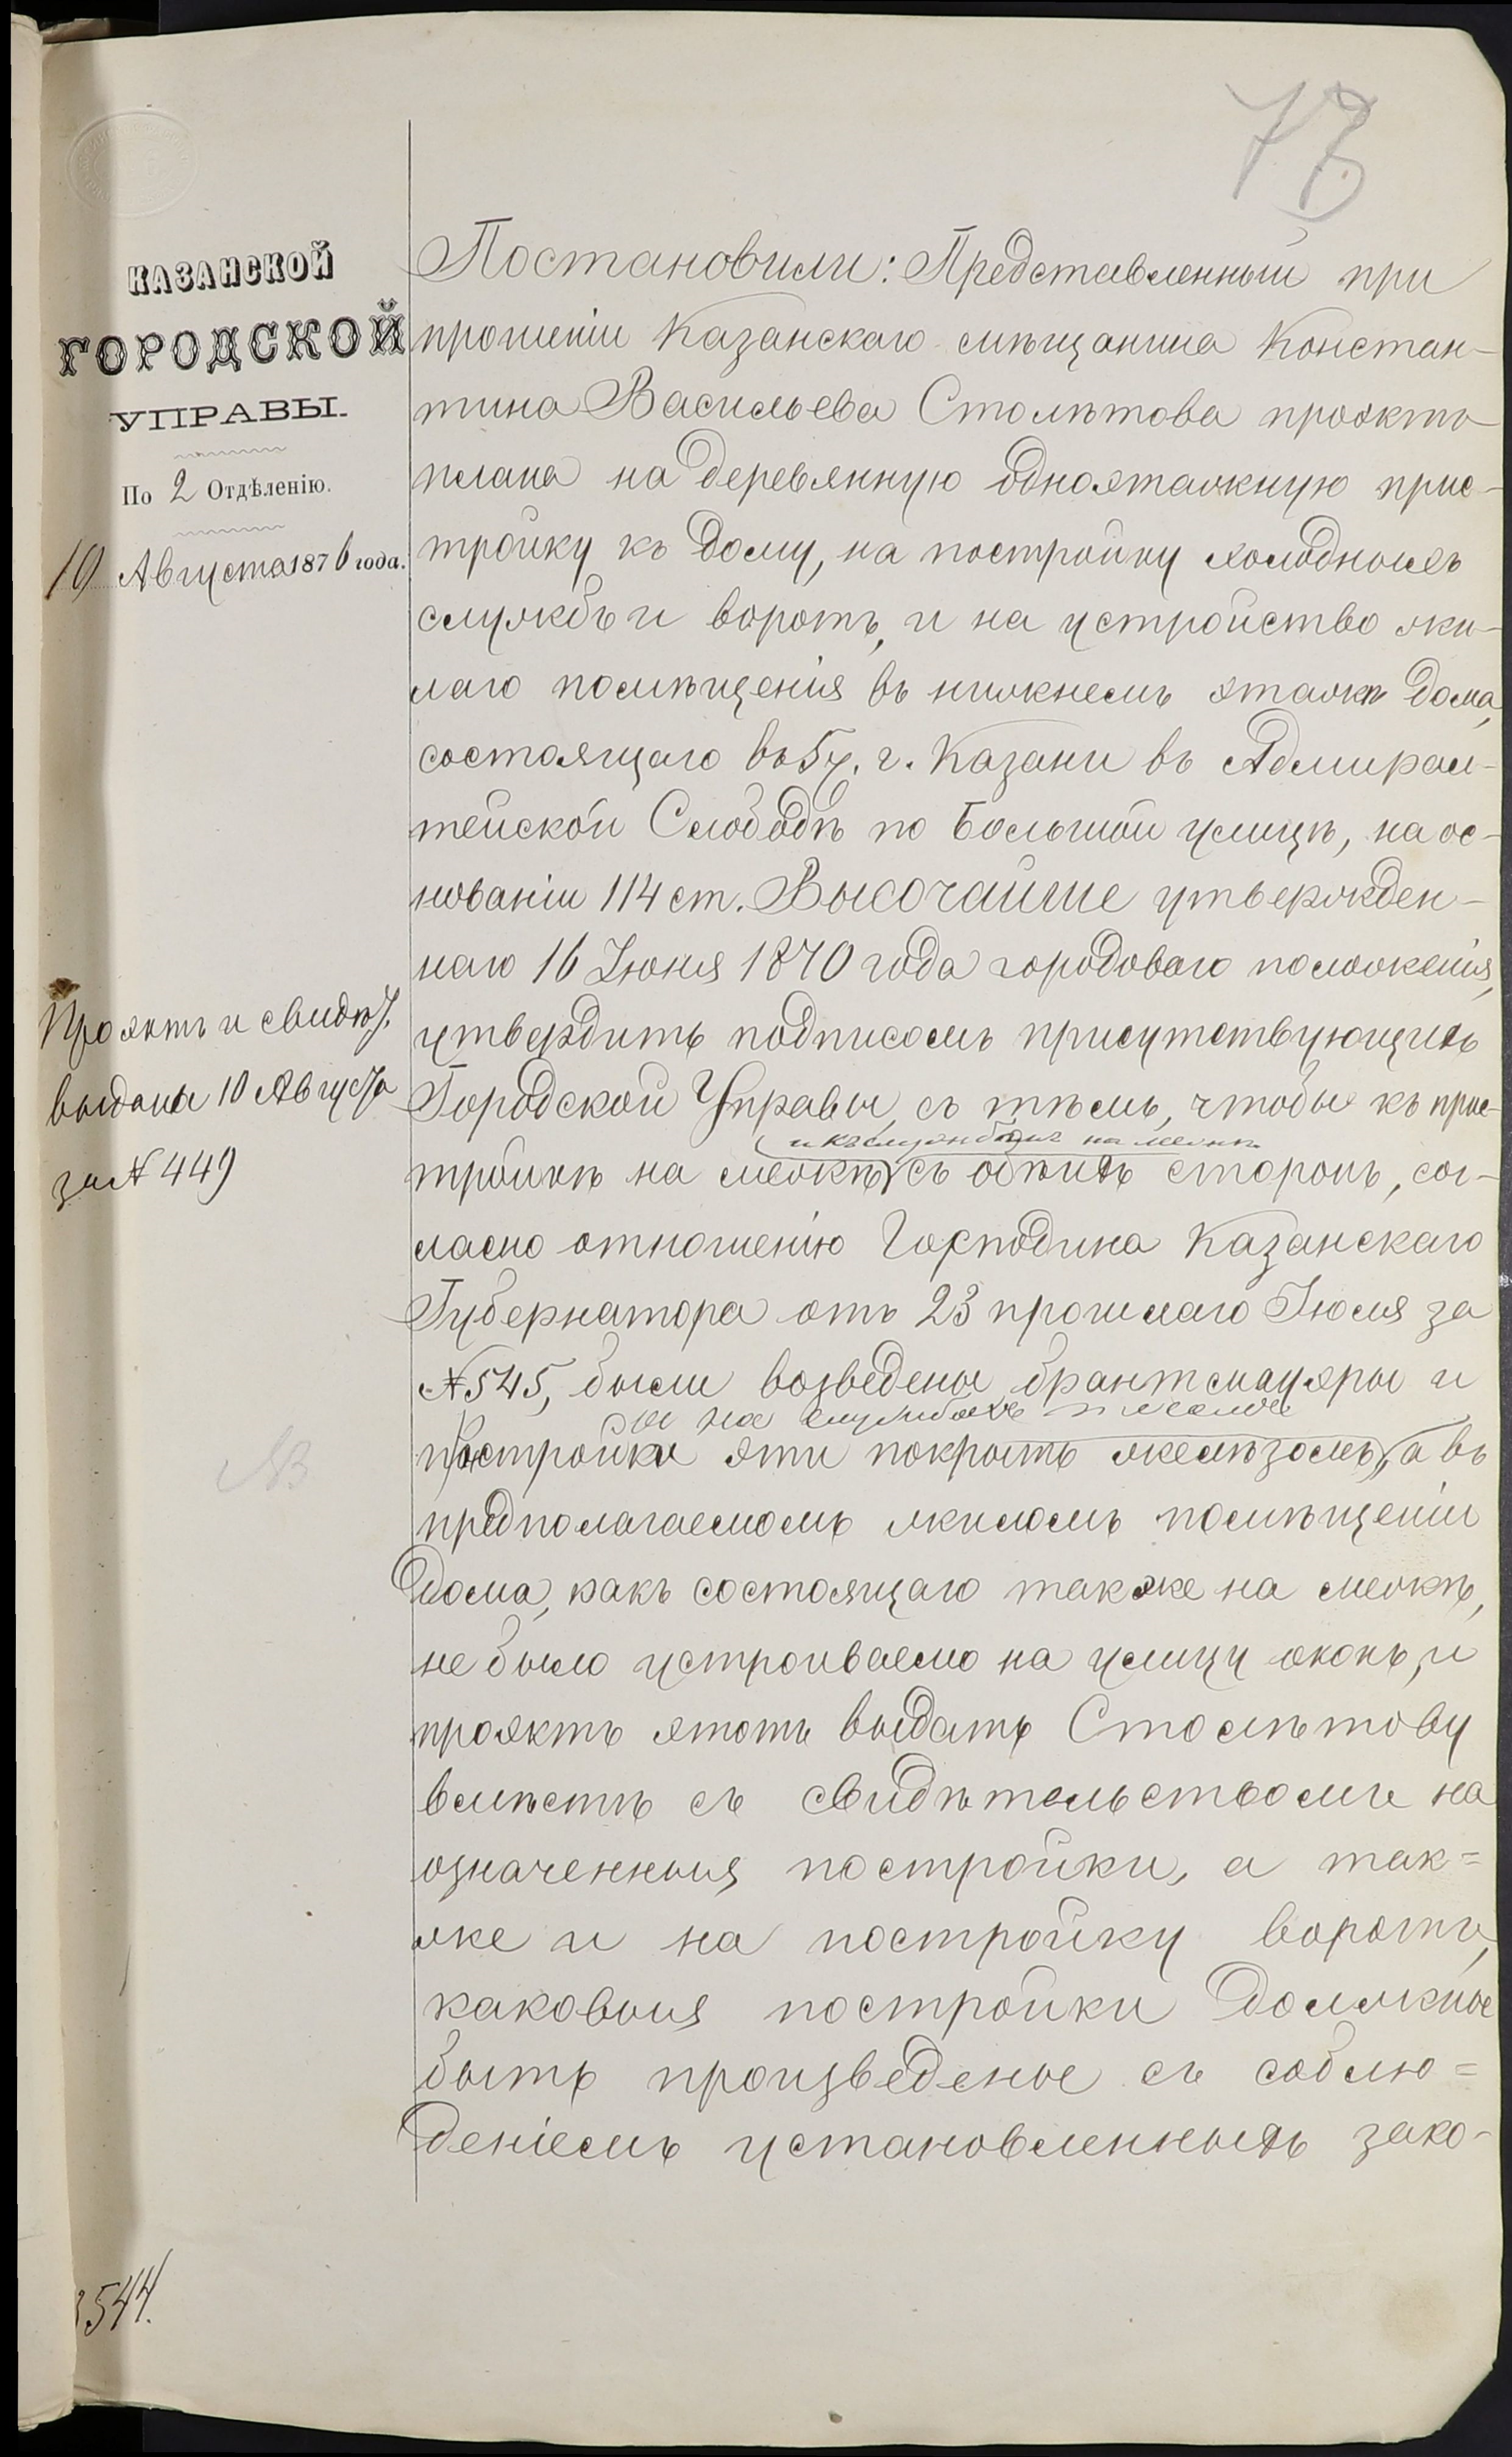 КАЗАНСКОЙ
ГОРОДСКОЙ
УПРАВЫ.
По 2 Отдѣленію.
10 Августа 1876 года.
Проэктъ и свидѣт.
выданы 10 Августа
за № 449
3544.
Постановили: Представленный при
прошеніи Казанскаго мѣщанина Констан-
тина Васильева Столѣтова проэктъ
плана на деревянную одноэтажную прис-
тройку къ дому, на постройку холодныхъ
службъ и воротъ, и на устройство жи-
лаго помѣщенія въ нижнемъ этажѣ дома,
состоящаго въ 5 ч. г. Казани въ Адмирал-
тейской Слободѣ по Большой улицѣ, на ос-
нованіи 114 ст. Высочайше утвержден-
наго 16 Іюня 1870 года городоваго положенія,
утвердить подписомъ присутствующихъ
Городской Управы, съ тѣмъ, чтобы къ прис-
и къ службамъ на межѣ
тройкѣ на межѣ съ обѣихъ сторонъ, сог-
ласно отношенію Господина Казанскаго
Губернатора отъ 23 прошлаго Іюля за
№ 545, были возведены брантмауэры и
на службахъ
постройки эти покрыть желѣзомъ, а въ
предполагаемомъ жиломъ помѣщеніи
дома, какъ состоящаго также на межѣ,
не было устроиваемо на улицу оконъ, и
проэктъ этотъ выдать Столѣтову
вмѣстѣ съ свидѣтельствомъ на
означенныя постройки, а так=
же и на постройку воротъ,
каковыя постройки должны
быть произведены съ соблю=
деніемъ установленныхъ зако-